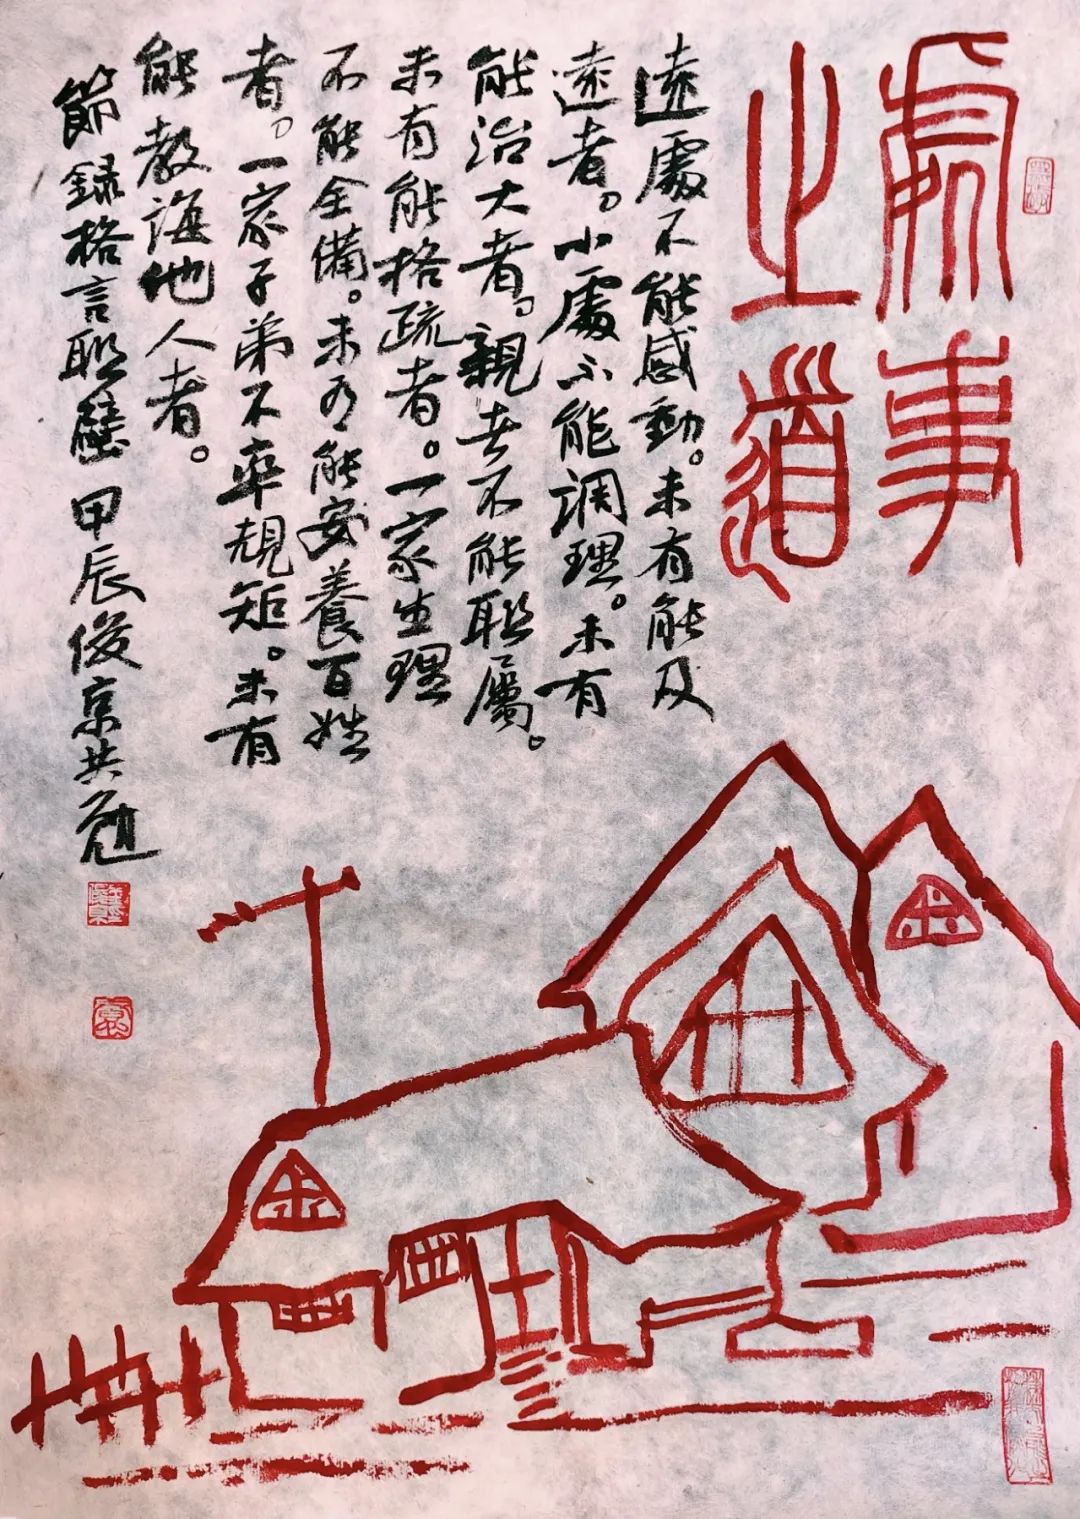 處事
之道
遠處不能感動。未有能及
遠者。小處不能調理。未有
能治大者。親者不能聯屬。
未有能格疏者。一家生理
不能全備。未有能安養百姓
者。一家子弟不率規矩。未有
能教誨他人者。
節録格言聯璧 甲辰俊京共勉